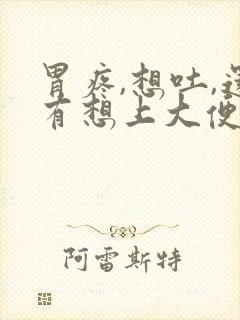 胃疼,想吐,还
有想上大便
阿雷斯特